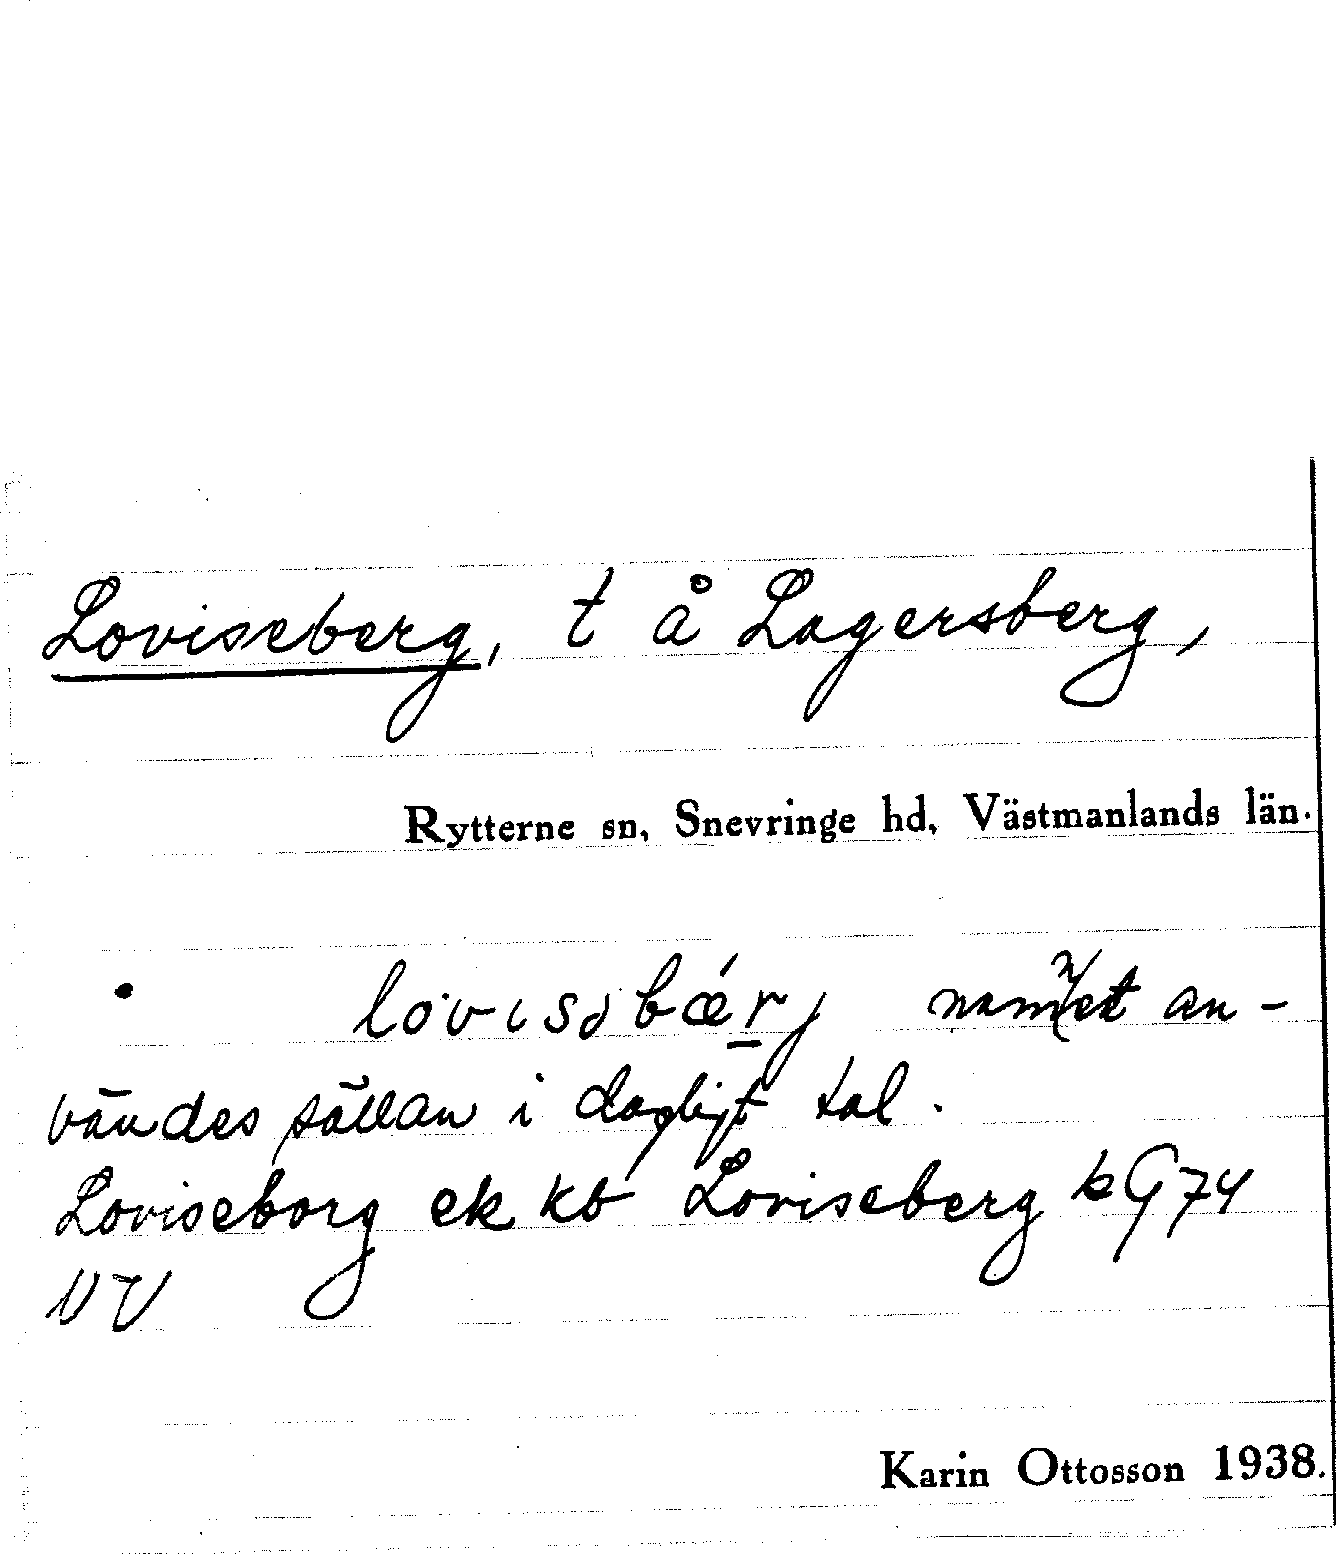 Loviseberg, t å Lagersberg,
Rytterne sn, Snevringe hd, Västmanlands län.
lovisəbǽrj namnet an-
vändes sällan i dagligt tal.
Loviseborg ek kb Loviseberg kG74
NV
Karin Ottosson 1938.